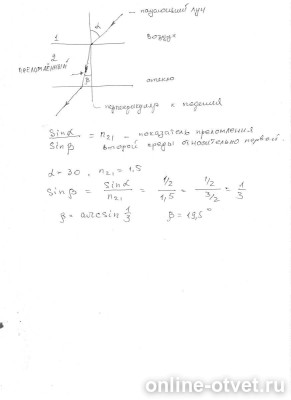 падающий луч
α
1
воздух
2
преломлённый
β
стекло
перпендикуляр к
Sinα / Sinβ = n₂₁ - показатель преломления
второй среды относительно первой.
α = 30, n₂₁ = 1,5
Sinβ = Sinα / n₂₁ = 1/2 / 1,5 = 1/2 / 3/2 = 1/3
β = arcsin 1/3    β = 19,5°
online-otvet.ru